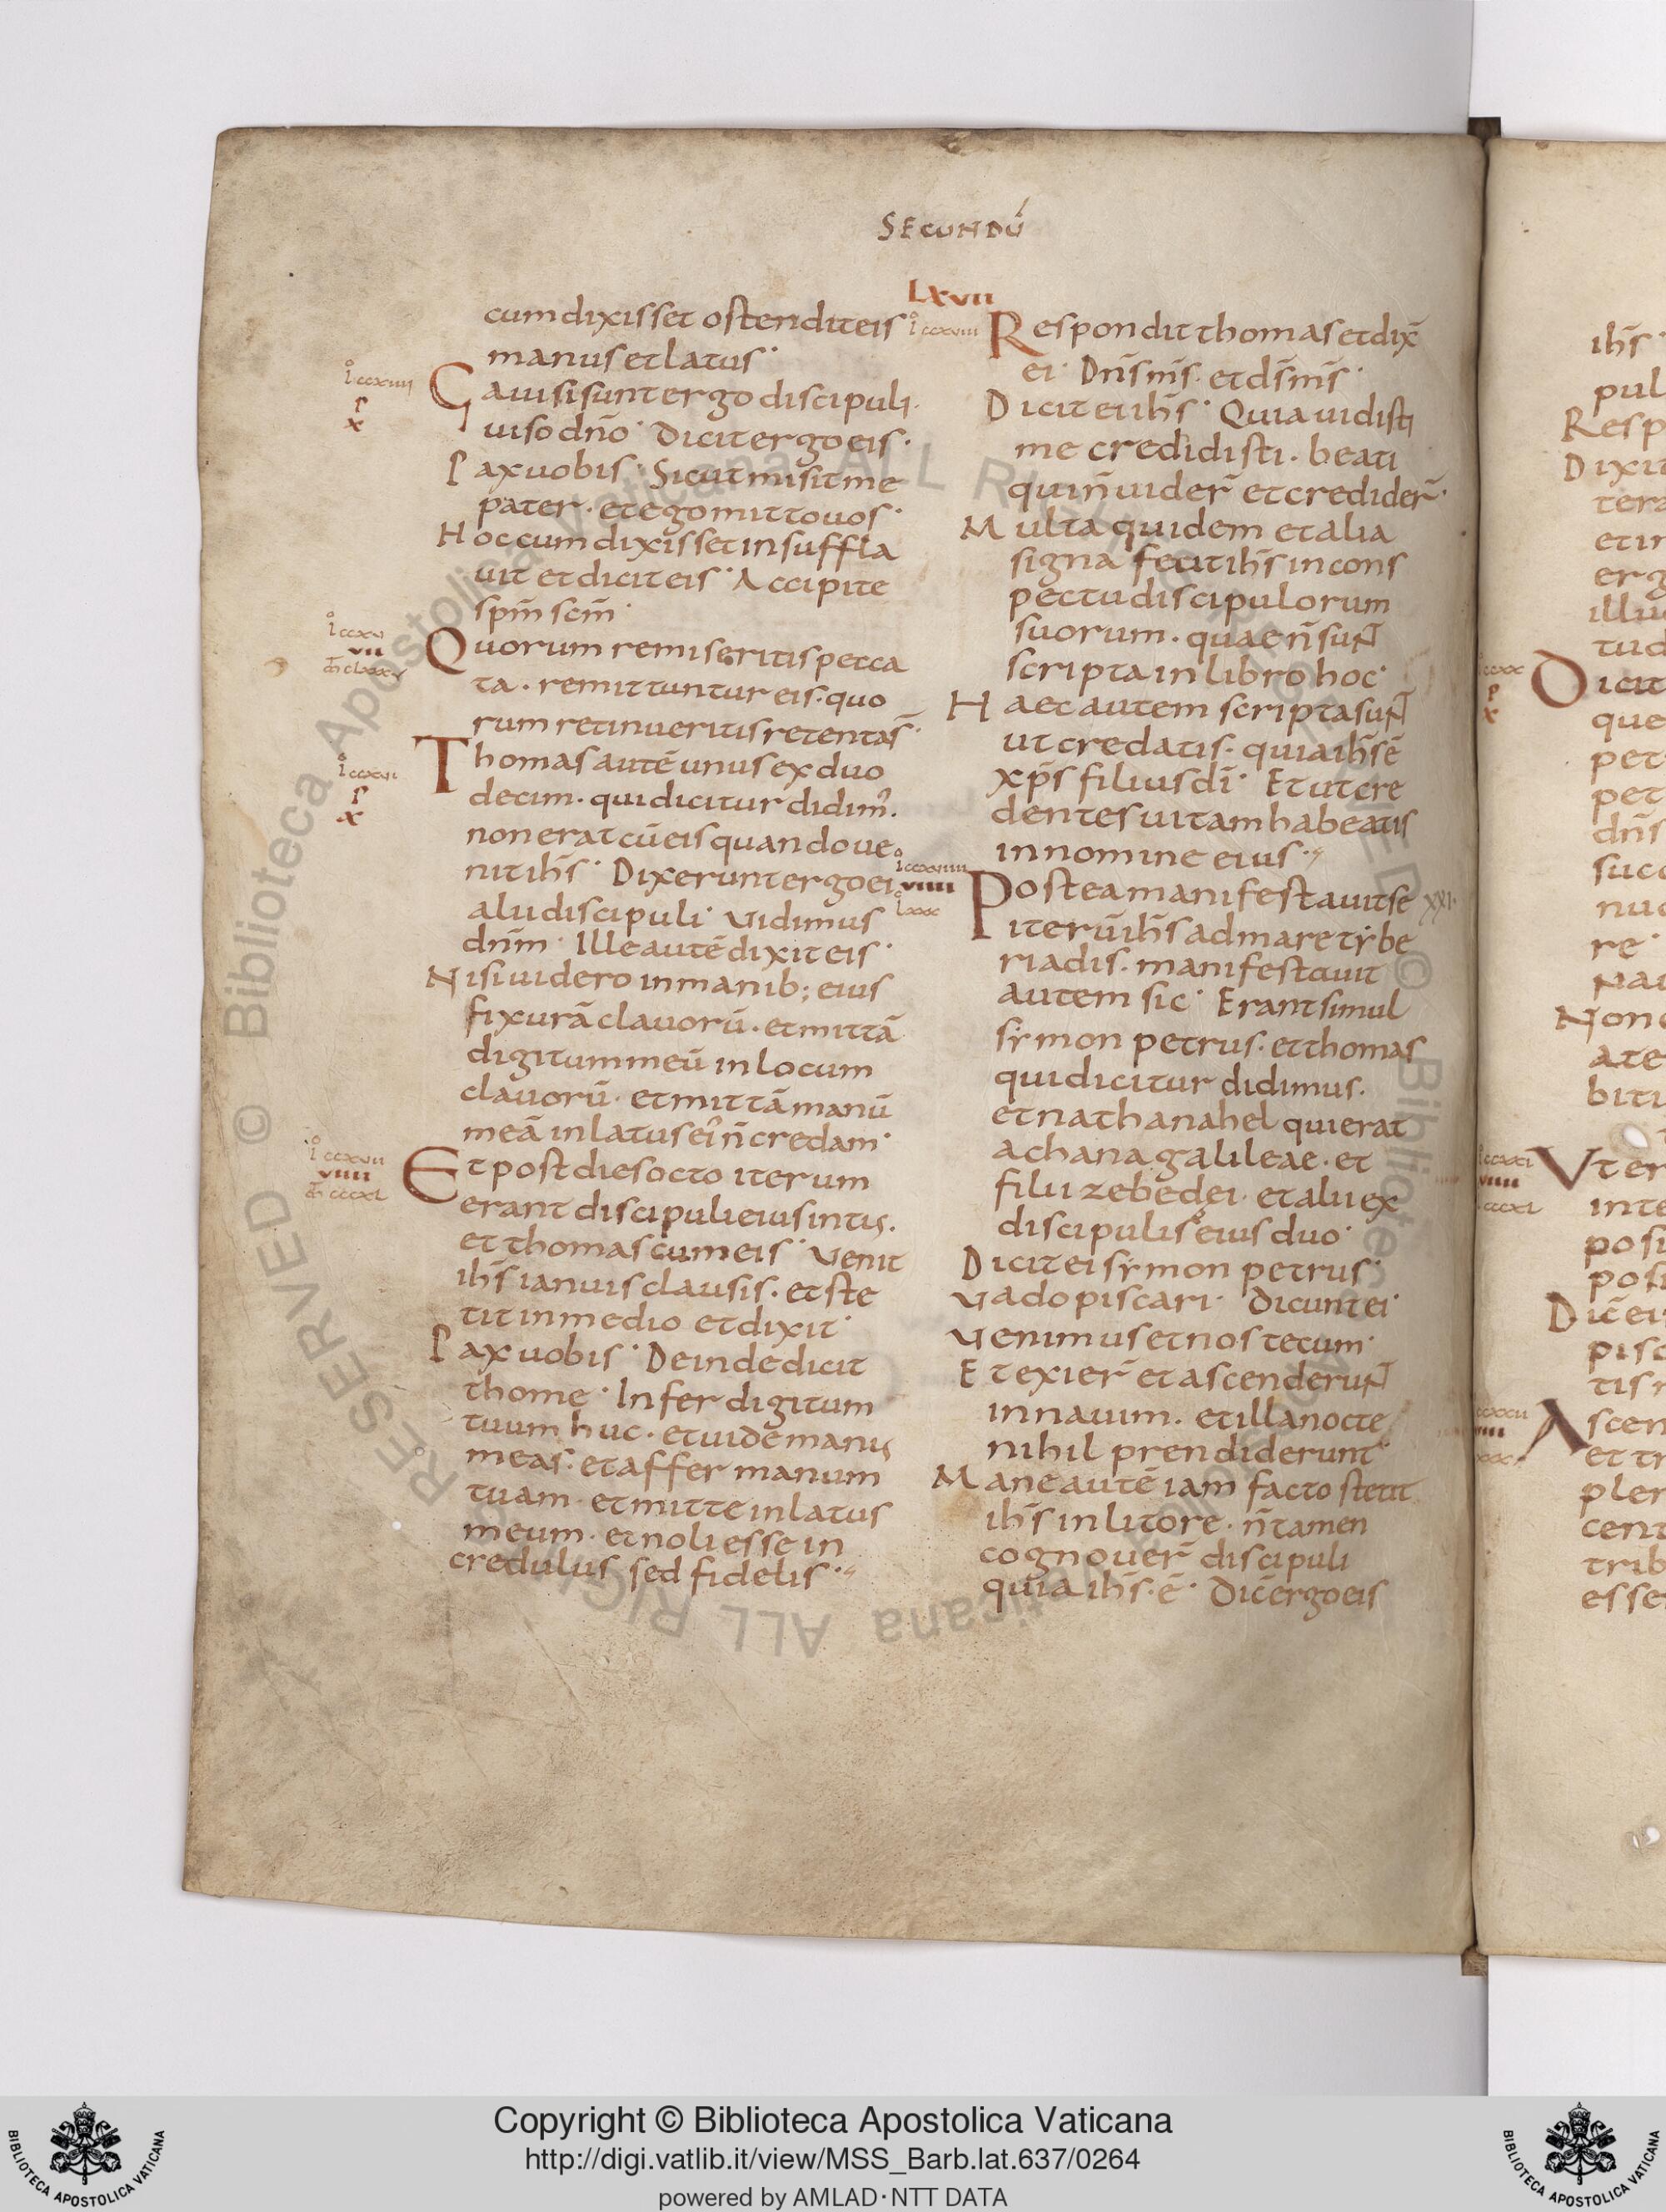 SECUNDŪ
cum dixisset ostendit eis
manus et latus·
Gauisi sunt ergo discipuli·
uiso dn̄o· Dicit ergo eis·
Pax uobis· Sicut misit me
pater· et ego mitto uos·
Hoc cum dixisset insuffla
uit et dicit eis· Accipite
sp̄m sc̄m·
Quorum remiseritis pecca
ta· remittuntur eis· quo
rum retinueritis retenta s̄·
Thomas autē unus ex duo
decim· qui dicitur didim᾽·
non erat cū eis quando ue
nit ihs̄· Dixerunt ergo ei
alii discipuli· Uidimus
dn̄m· Ille autē dixit eis·
Nisi uidero in manib; eius
fixurā clauorū· et mittā
digitum meū in locum
clauorū· et mittā manū
meā in latus ei᾽ n̄ credam·
Et post dies octo iterum
erant discipuli eius intus·
et thomas cum eis· Uenit
ihs̄ ianuis clausis· et ste
tit in medio et dixit·
Pax uobis· Deinde dicit
thome· Infer digitum
tuum huc· et uide manus
meas· et affer manum
tuam· et mitte in latus
meum· et noli esse in
credulus sed fidelis·
LXVII
Respondit thomas et dix̄
ei· Dn̄s m̄s· et d̄s m̄s·
Dicit ei ihs̄· Quia uidisti
me credidisti· beati
qui n̄ uider̄ et credider̄·
Multa quidem et alia
signa fecit ihs̄ in cons
pectu discipulorum
suorum· quae n̄ sunt
scripta in libro hoc·
Haec autem scripta sunt
ut credatis· quia ihs̄ ē
xp̄s filius dī· Et ut cre
dentes uitam habeatis
in nomine eius·
Postea manifestauit se XXI·
iterū ihs̄ ad mare tẏbe
riadis· manifestauit
autem sic· Erant simul
sẏmon petrus· et thomas
qui dicitur didimus·
et nathanahel qui erat
a chana galileae· et
filii zebedei· et alii ex
discipulis eius duo·
Dicit ei sẏmon petrus·
Uado piscari· Dicunt ei·
Uenimus et nos tecum·
Et exier̄ et ascenderunt
in nauim· et illa nocte
nihil prendiderunt·
Mane autē iam facto stetit
ihs̄ in litore· n̄ tamen
cognouer̄ discipuli
quia ihs̄· ē· Dic̄ ergo eis
Copyright © Biblioteca Apostolica Vaticana
http://digi.vatlib.it/view/MSS_Barb.lat.637/0264
powered by AMLAD·NTT DATA